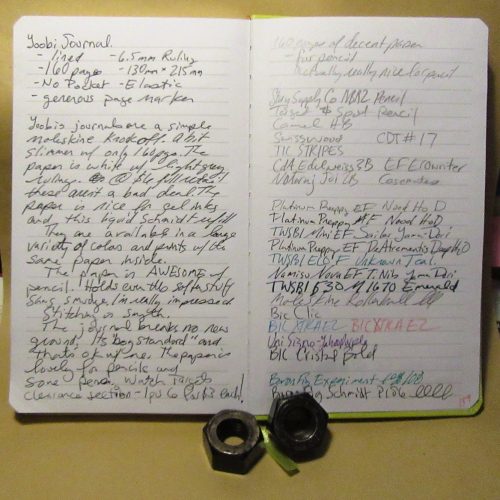 Yoobi Journal
- lined - 6.5mm Ruling
- 160 pages - 130mm x 215mm
- No Pocket - Elastic
- generous page marker
Yoobi's journals are a simple
moleskine knock off. A bit
slimmer w/ only 160pgs. The
paper is white w/ light grey
ruling. @ full retail
these arent a bad deal. The
paper is nice for gel inks
and this liquid Schmidt refill
They are available in a large
variety of colors and prints w/ the
same paper inside.
The paper is AWESOME w/
pencil. Holds even the soft stuff
sans smudge. I'm really impressed
Stitching is smyth.
The journal breaks no new
ground. Its "bog standard" and
thats ok w/ me. The paper is
lovely for pencils and
some pens. Watch Targets
clearance section - I put Co Park's back!
160 pages of decent paper
- for pencil
Actually really nice for pencil
Shay Supply Co M Pencil
Target $ Spot Pencil
Camel HB
Swisswood CDT #17
TIC STRIPES
CdA Edelweiss 3B EF Erowriter
Nataraj Joi 2B
Platinum Preppy EF Nood Ho D
Platinum Preppy MF Nood HoD
TWSBI Mini EF Sailor Yama Dori
Platinum Preppy EF DeAtramentis Deep D
TWSBI ECO F Unknown Teal
Namisu Nova EF T. Nib Yama Dori
TWSBI 530 M 1670 Emerald
Moleskine Rollerball
Bic Clic
BIC XTRA EZ BIC XTRA EZ
Uni Signo
BIC Cristal Bold
Baron Fig Experiment
Baron Fig Schmidt P126 llll